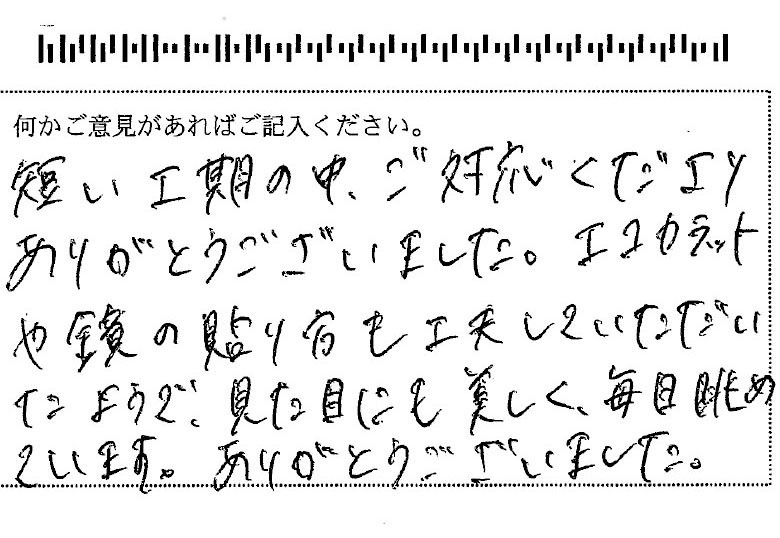 何かご意見があればご記入ください。
短い工期の中、ご対応くださり
ありがとうございました。エコカラット
や鏡の貼り方も工夫していただい
たようで、見た目にも美しく、毎日眺め
ています。ありがとうございました。